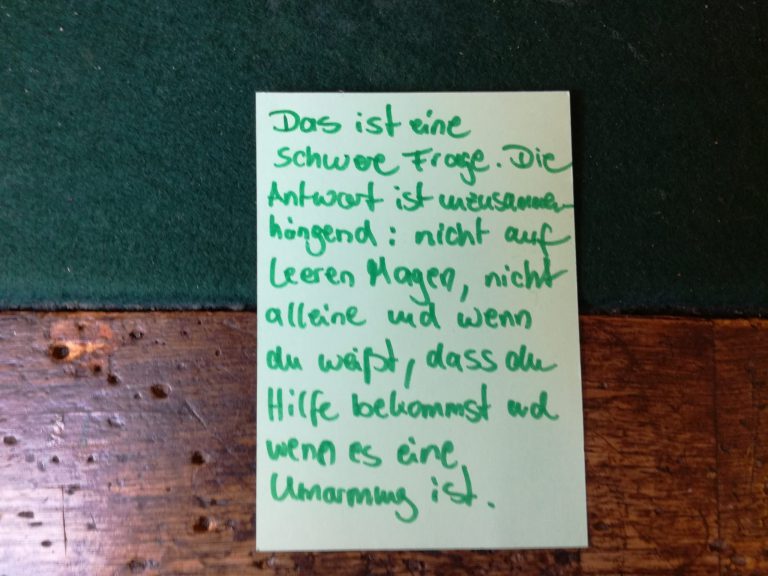 Das ist eine
schwere Frage. Die
Antwort ist unzusammen-
hängend: nicht auf
leeren Magen, nicht
alleine und wenn
du weißt, dass du
Hilfe bekommst und
wenn es eine
Umarmung ist.